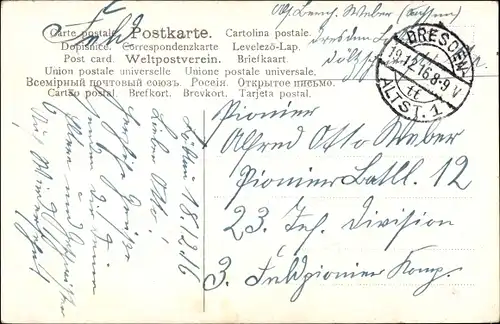 Feld
Carte postale. Postkarte. Cartolina postale.
Dopisnice. Correspondenzkarte Levelező-Lap.
Post card. Weltpostverein. Briefkaart.
Union postale universelle. Unione postale universale.
Всемірный почтовый союзъ. Россіи. Открытое письмо.
Cartão postal. Brefkort. Brevkort. Tarjeta postal.
Weber
DRESDEN
19.12.16.8-9 V
ALTST. 1
Pionier
Alfred Otto Weber
Pionier Batll. 12
23. Inf. Division
3. Feldpionier Komp.
18.12.16
Lieber Otto!
Herzliche Grüße
senden dir deine
Eltern und Geschwister